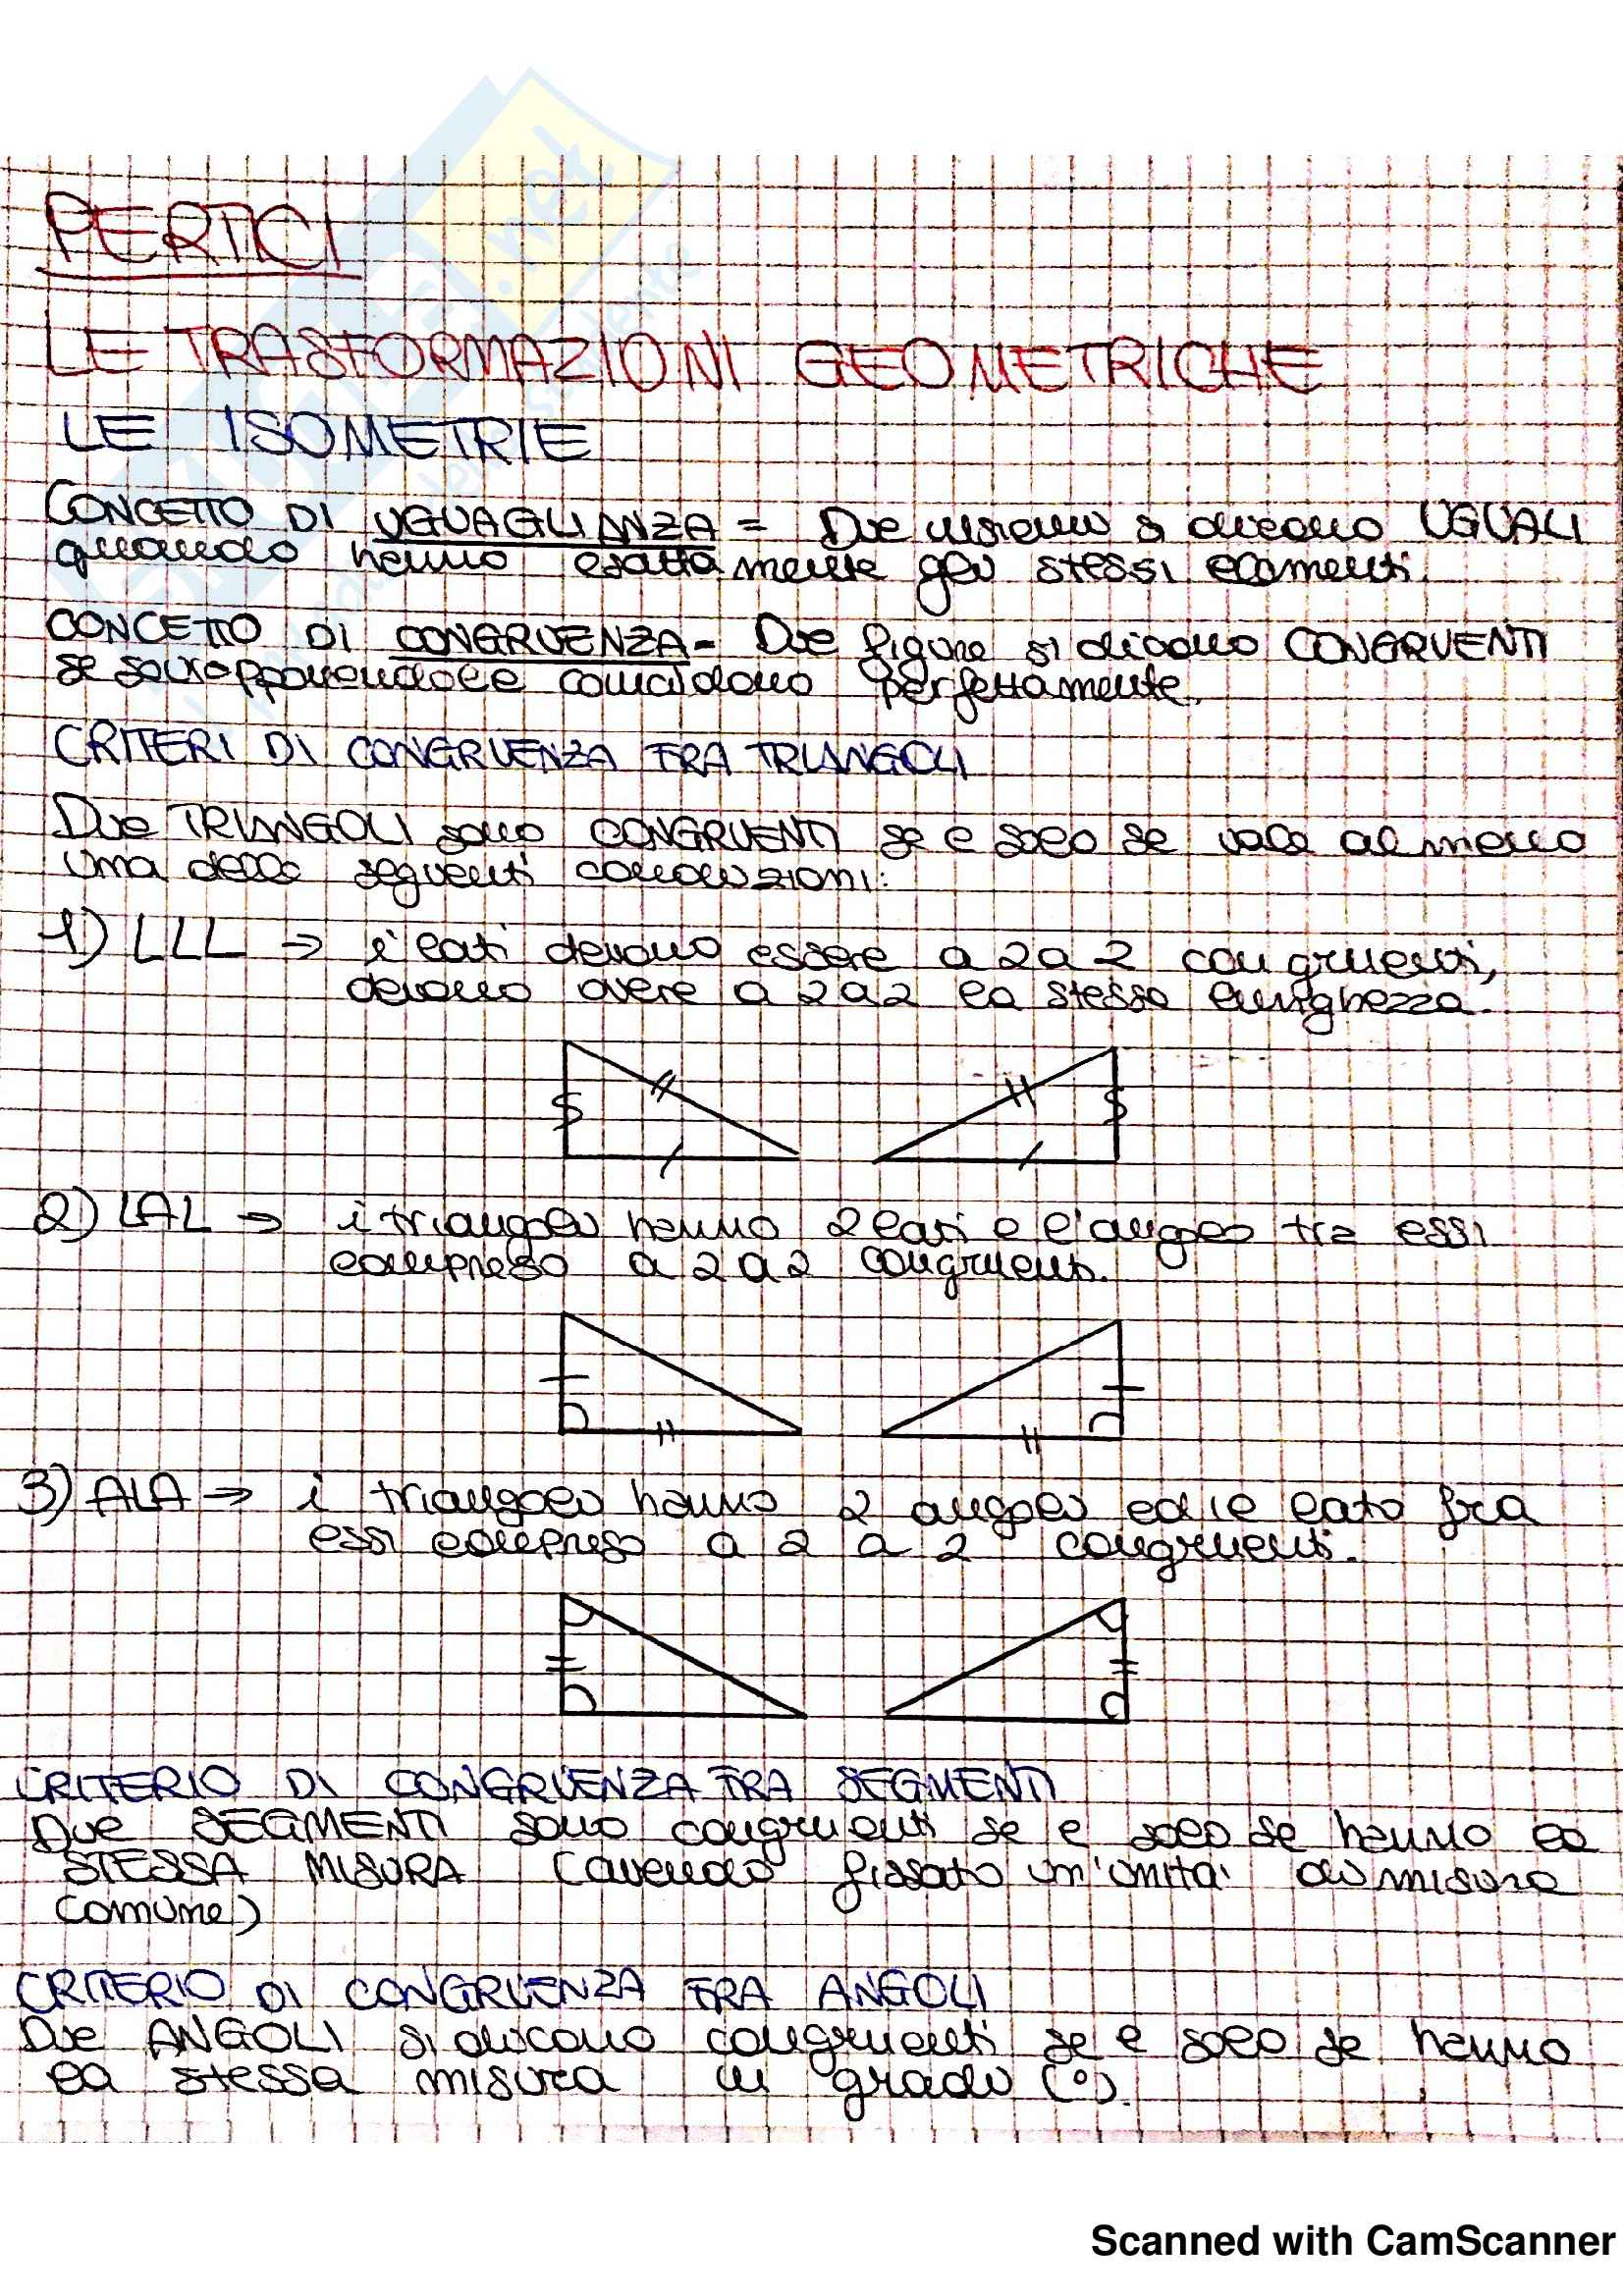 PERTICI
LE TRASFORMAZIONI GEOMETRICHE
LE ISOMETRIE
CONCETTO DI UGUAGLIANZA = Due insiemi si dicono UGUALI
quando hanno esattamente gli stessi elementi.
CONCETTO DI CONGRUENZA = Due figure si dicono CONGRUENTI
se sovrapponendole coincidono perfettamente.
CRITERI DI CONGRUENZA FRA TRIANGOLI
Due TRIANGOLI sono CONGRUENTI se e solo se vale almeno
una delle seguenti condizioni:
1) LLL → i lati devono essere a 2 a 2 congruenti,
devono avere a 2 a 2 la stessa lunghezza.
2) LAL → i triangoli hanno 2 lati e l'angolo tra essi
compreso a 2 a 2 congruenti.
3) ALA → i triangoli hanno 2 angoli ed il lato fra
essi compreso a 2 a 2 congruenti.
CRITERIO DI CONGRUENZA FRA SEGMENTI
Due SEGMENTI sono congruenti se e solo se hanno la
STESSA MISURA (avendo fissato un'unità di misura
comune)
CRITERIO DI CONGRUENZA FRA ANGOLI
Due ANGOLI si dicono congruenti se e solo se hanno
la stessa misura in gradi (°).
Scanned with CamScanner